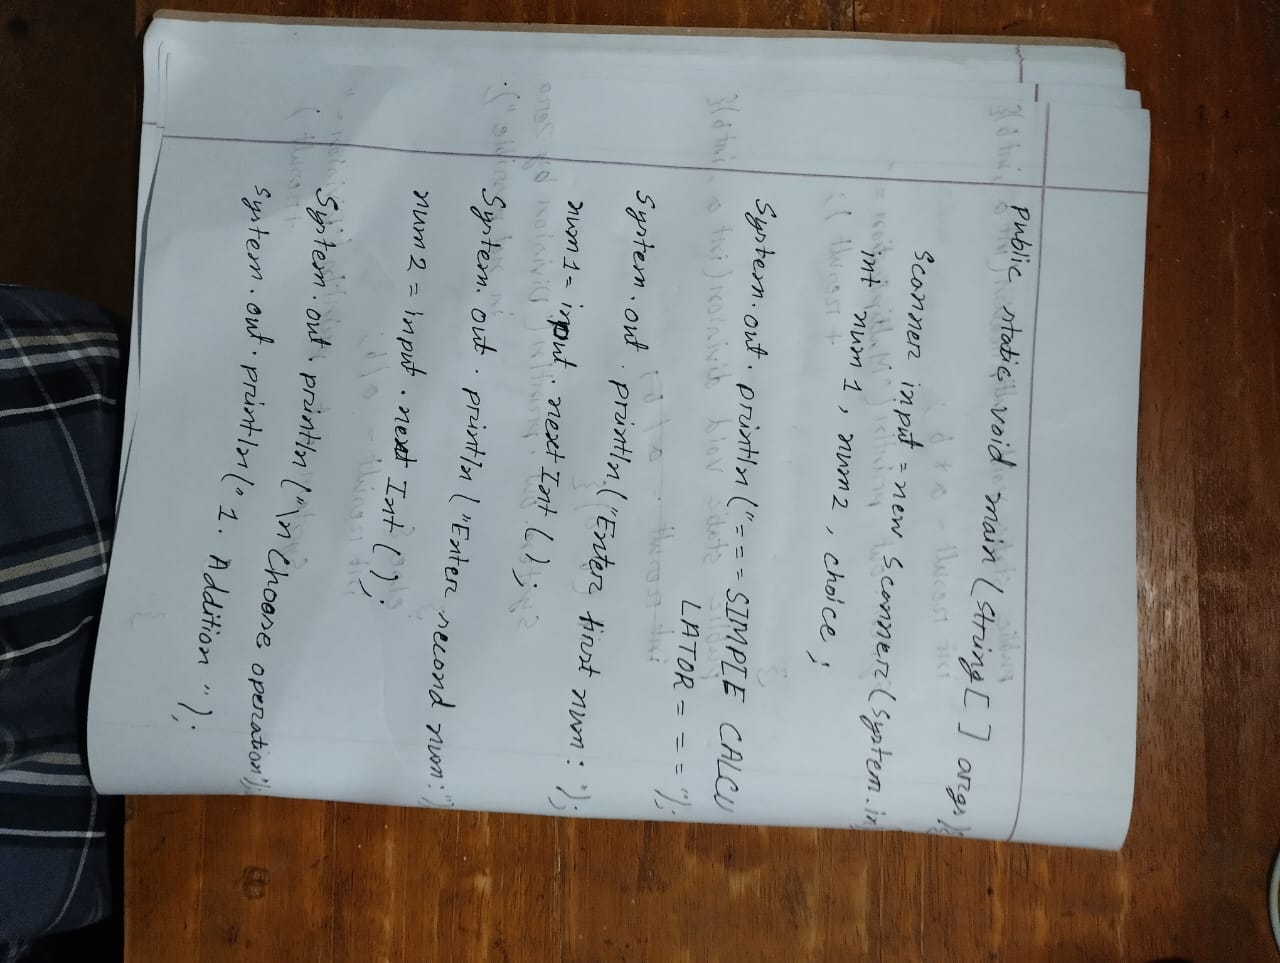 public static void main(String[] args){
Scanner input = new Scanner(System.in
int num1, num2, choice;
System.out.println("===SIMPLE CALCU
LATOR===");
System.out.println("Enter first num:");
num1 = input.nextInt();
System.out.println("Enter second num:")
num2 = input.nextInt();
System.out.println("\nChoose operation");
System.out.println("1. Addition");